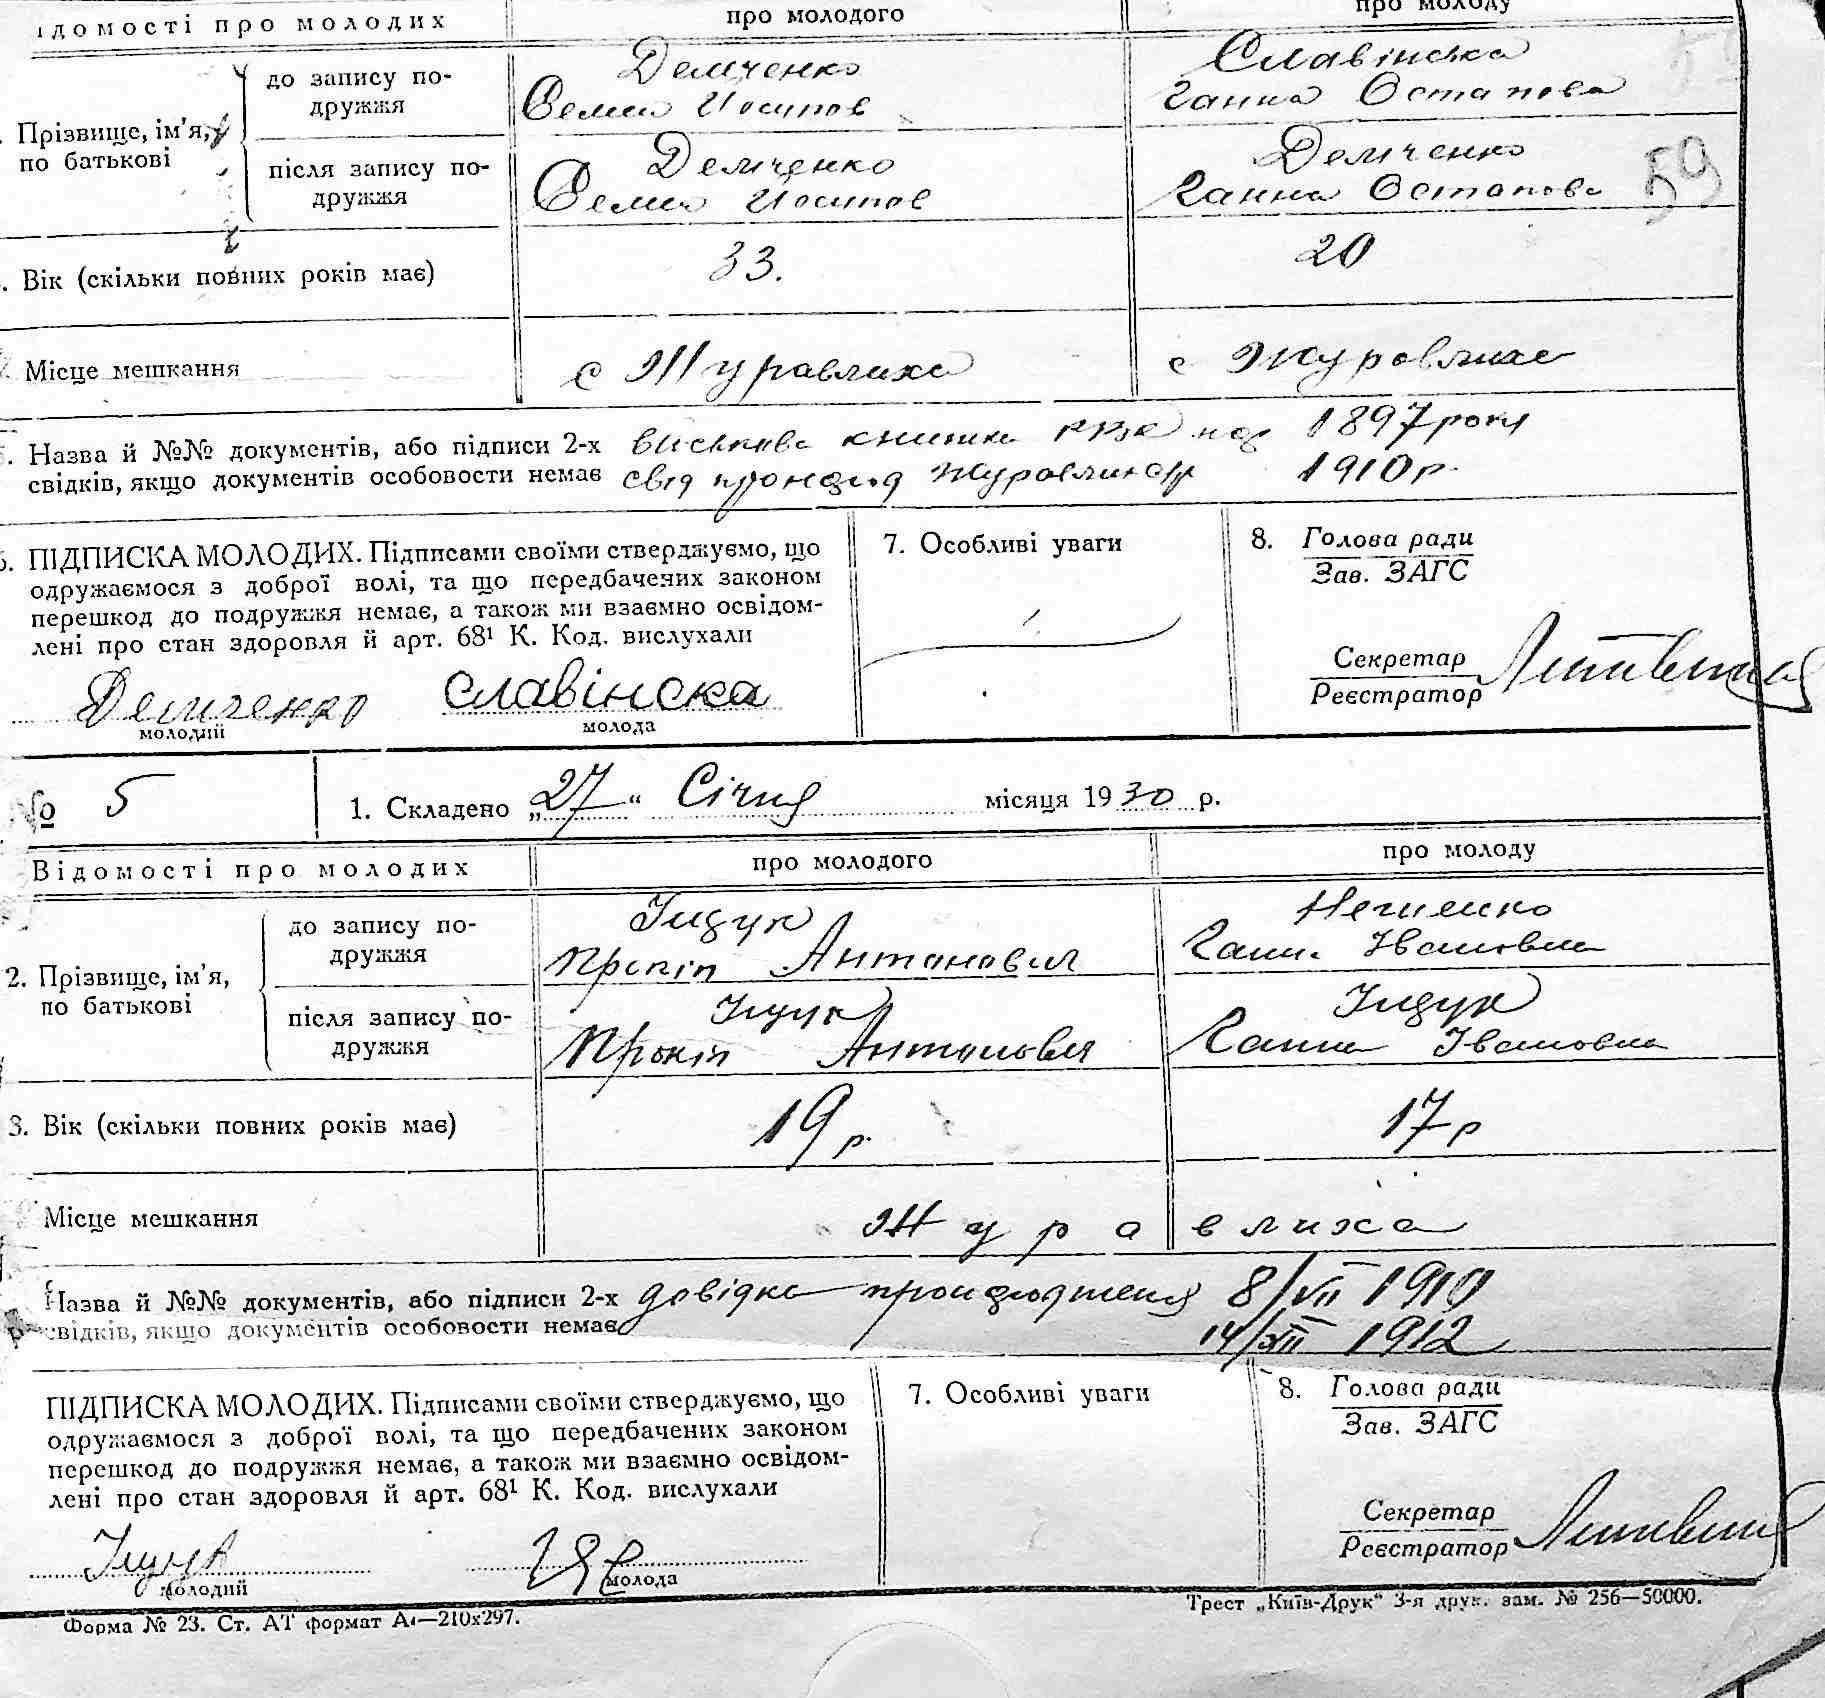 ідомості про молодих
про молодого
про молоду
Прізвище, ім'я,
по батькові
до запису по-
дружжя
Демченко
Семен Йосипов
Славінська
Ганна Остапова
після запису по-
дружжя
Демченко
Семен Йосипов
Демченко
Ганна Остапова
59
Вік (скільки повних років має)
33.
20
Місце мешкання
с Журавлиха
с Журавлиха
Назва й №№ документів, або підписи 2-х
свідків, якщо документів особовости немає
військова книжка 1897 року
свід 1910 р.
ПІДПИСКА МОЛОДИХ. Підписами своїми стверджуємо, що
одружаємося з доброї волі, та що передбачених законом
перешкод до подружжя немає, а також ми взаємно освідом-
лені про стан здоровля й арт. 68¹ К. Код. вислухали
Демченко
молодий
Славінска
молода
7. Особливі уваги
8. Голова ради
Зав. ЗАГС
Секретар
Реєстратор
№ 5
1. Складено „27“ Січня місяця 1930 р.
Відомості про молодих
про молодого
про молоду
2. Прізвище, ім'я,
по батькові
до запису по-
дружжя
Іщук
Прокіп Антонович
Ганна Івановна
після запису по-
дружжя
Іщук
Прокіп Антонович
Іщук
Ганна Івановна
3. Вік (скільки повних років має)
19 р.
17 р
Місце мешкання
Журавлиха
Назва й №№ документів, або підписи 2-х
свідків, якщо документів особовости немає
довідка 8/VII 1910
14/XII 1912
ПІДПИСКА МОЛОДИХ. Підписами своїми стверджуємо, що
одружаємося з доброї волі, та що передбачених законом
перешкод до подружжя немає, а також ми взаємно освідом-
лені про стан здоровля й арт. 68¹ К. Код. вислухали
Іщук
молодий
молода
7. Особливі уваги
8. Голова ради
Зав. ЗАГС
Секретар
Реєстратор
Форма № 23. Ст. АТ формат А4—210x297.
Трест „Київ-Друк“ 3-я друк. зам. № 256—50000.